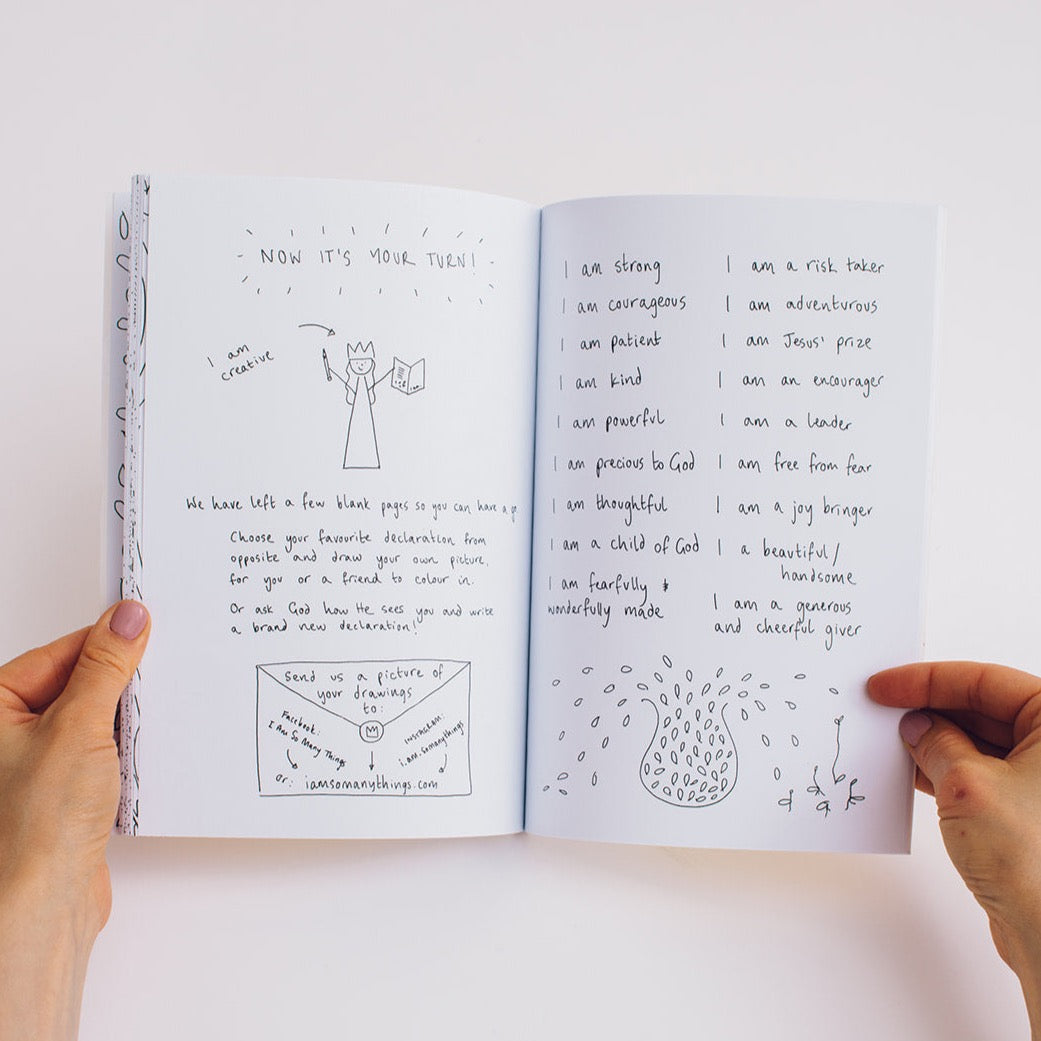 NOW IT'S YOUR TURN!
I am
creative
We have left a few blank pages so you can have a go.
Choose your favourite declaration from
opposite and draw your own picture,
for you or a friend to colour in.
Or ask God how He sees you and write
a brand new declaration!
Send us a picture of
your drawings
to:
Facebook:
I Am So Many Things
INSTAGRAM:
i.am.somanythings
or: iamsomanythings.com
I am strong
I am courageous
I am patient
I am kind
I am powerful
I am precious to God
I am thoughtful
I am a child of God
I am fearfully &
wonderfully made
I am a risk taker
I am adventurous
I am Jesus' prize
I am an encourager
I am a leader
I am free from fear
I am a joy bringer
I a beautiful/
handsome
I am a generous
and cheerful giver